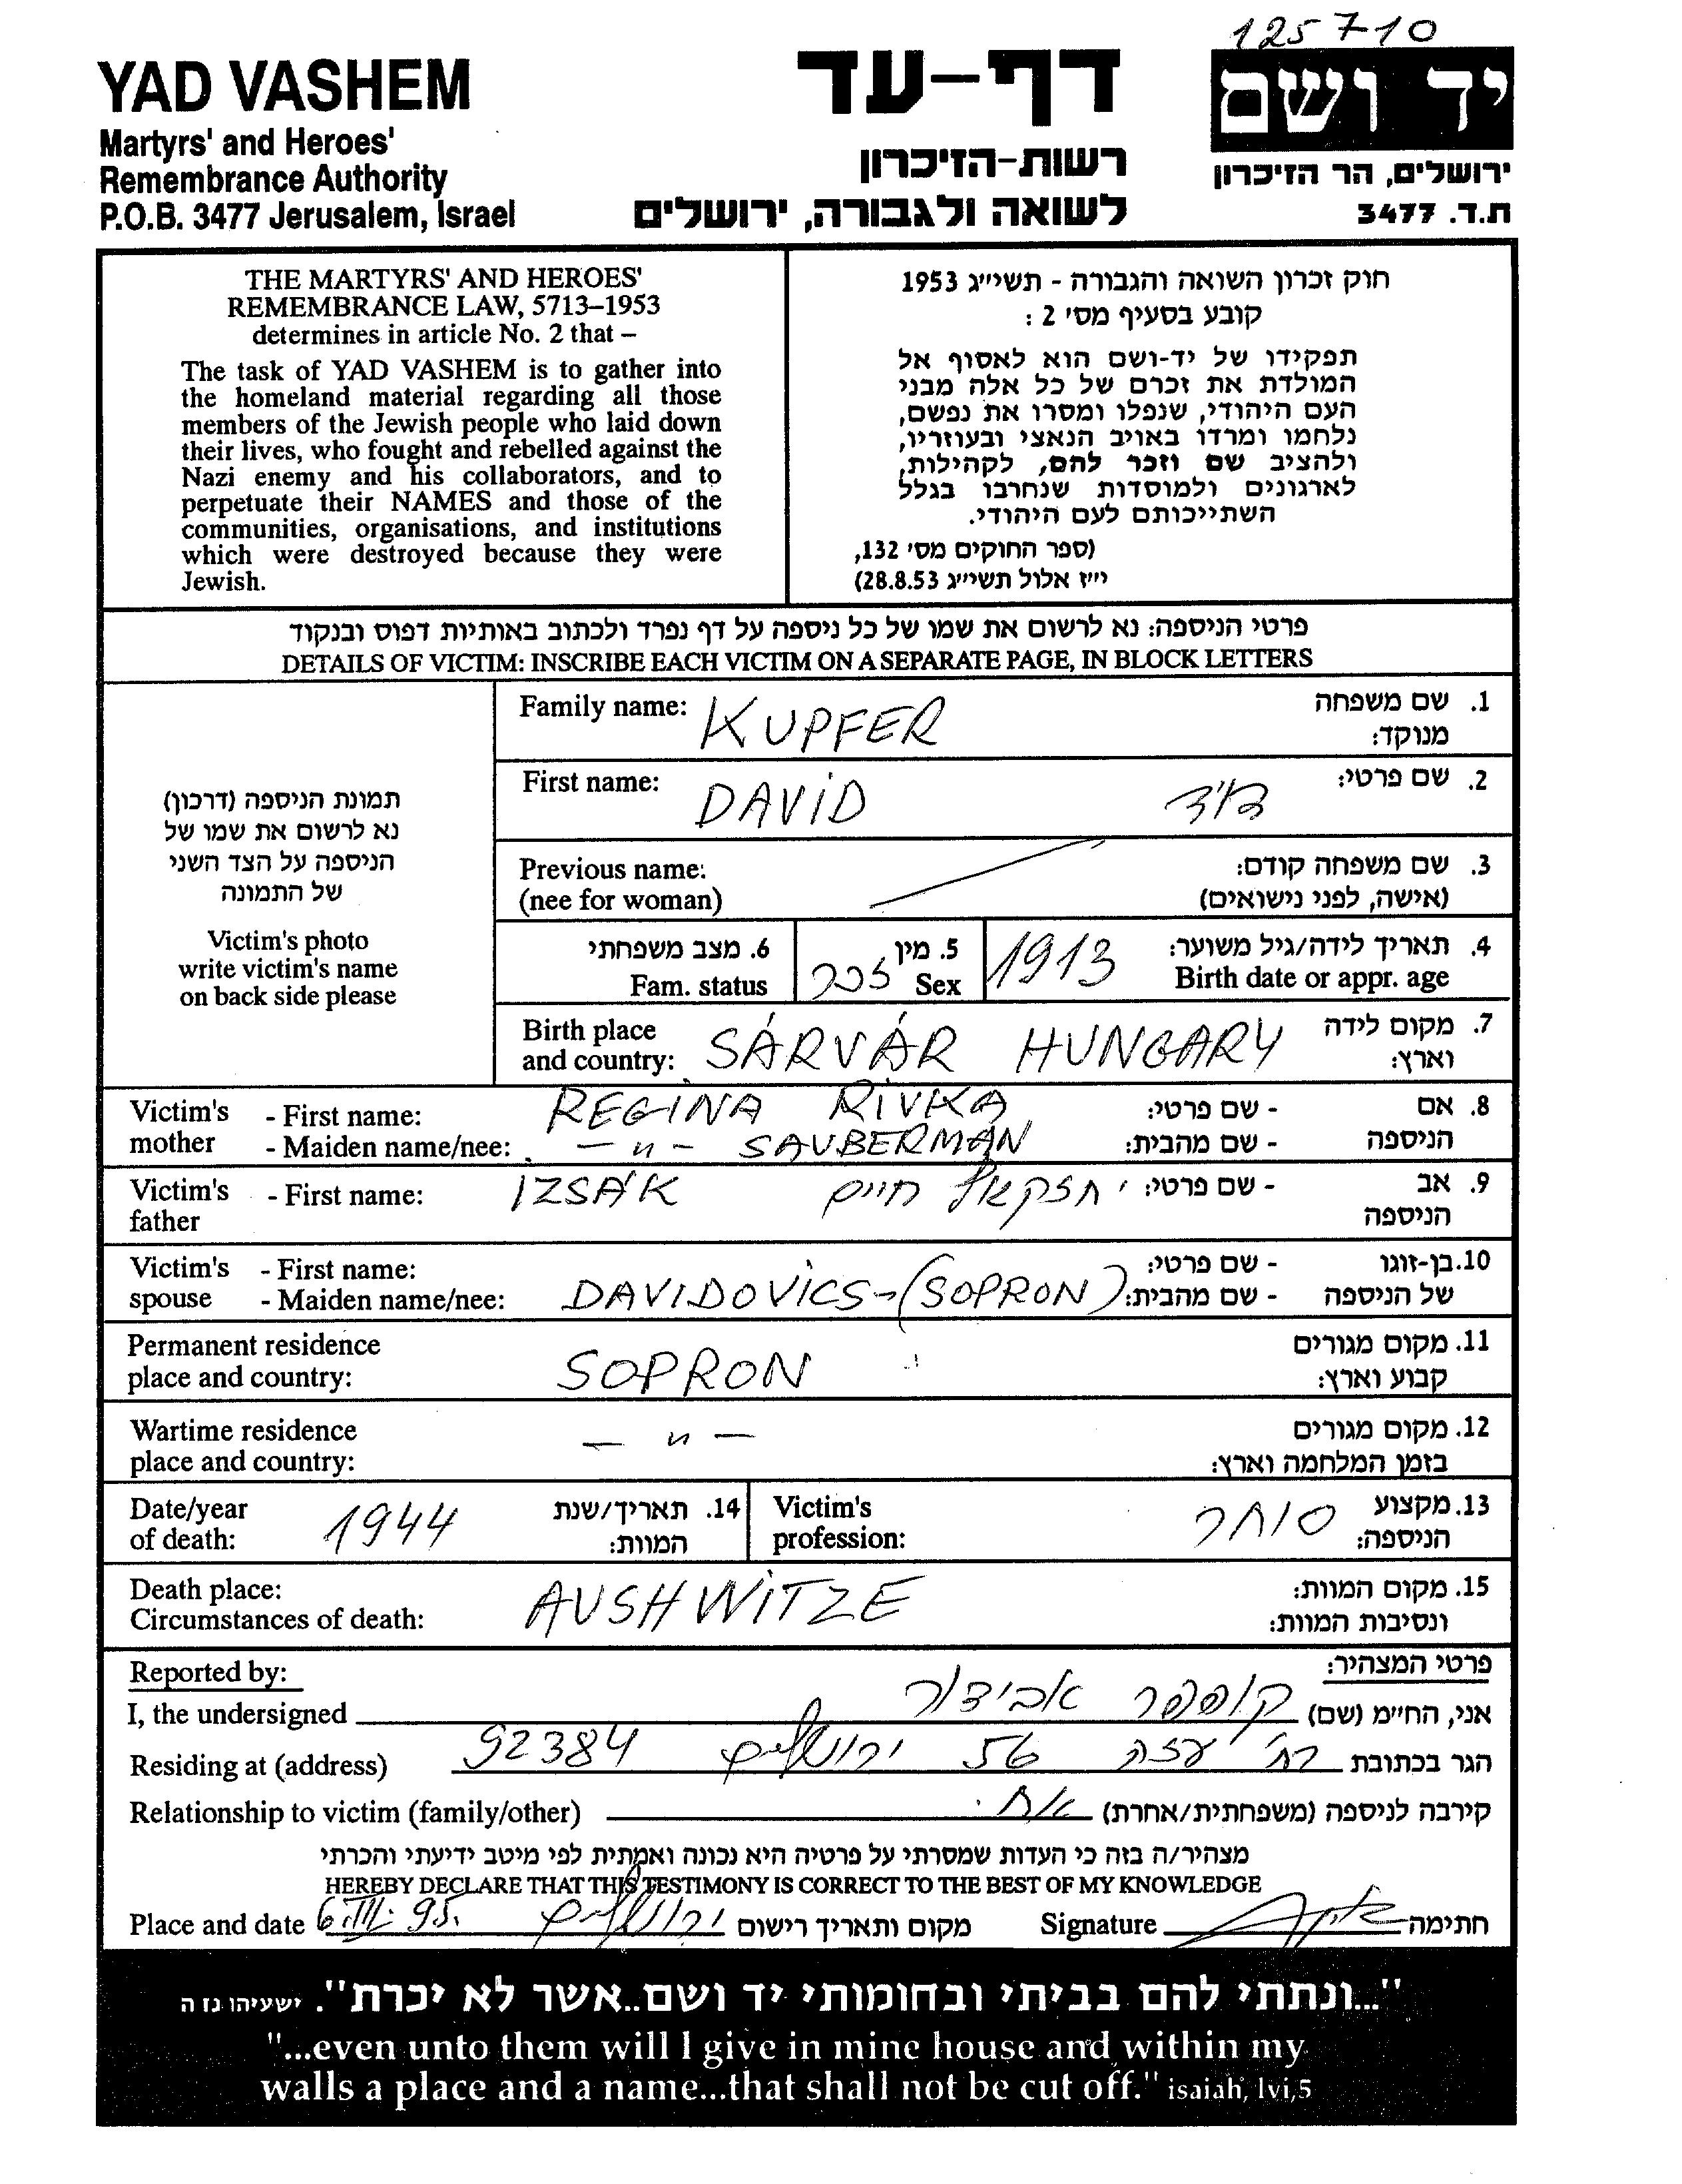 125710
YAD VASHEM
Martyrs' and Heroes'
Remembrance Authority
P.O.B. 3477 Jerusalem, Israel
דף-עד
רשות-הזיכרון
לשואה ולגבורה, ירושלים
יד ושם
ירושלים, הר הזיכרון
ת.ד. 3477
THE MARTYRS' AND HEROES'
REMEMBRANCE LAW, 5713–1953
determines in article No. 2 that –
The task of YAD VASHEM is to gather into
the homeland material regarding all those
members of the Jewish people who laid down
their lives, who fought and rebelled against the
Nazi enemy and his collaborators, and to
perpetuate their NAMES and those of the
communities, organisations, and institutions
which were destroyed because they were
Jewish.
חוק זכרון השואה והגבורה - תשי״ג 1953
קובע בסעיף מס׳ 2 :
תפקידו של יד-ושם הוא לאסוף אל
המולדת את זכרם של כל אלה מבני
העם היהודי, שנפלו ומסרו את נפשם,
נלחמו ומרדו באויב הנאצי ובעוזריו,
ולהציב שם וזכר להם, לקהילות,
לארגונים ולמוסדות שנחרבו בגלל
השתייכותם לעם היהודי.
(ספר החוקים מס׳ 132,
י״ז אלול תשי״ג 28.8.53)
פרטי הניספה: נא לרשום את שמו של כל ניספה על דף נפרד ולכתוב באותיות דפוס ובנקוד
DETAILS OF VICTIM: INSCRIBE EACH VICTIM ON A SEPARATE PAGE, IN BLOCK LETTERS
תמונת הניספה (דרכון)
נא לרשום את שמו של
הניספה על הצד השני
של התמונה
Victim's photo
write victim's name
on back side please
Family name: KUPFER 1. שם משפחה
מנוקד:
First name: DAVID דוד 2. שם פרטי:
Previous name: 3. שם משפחה קודם:
(nee for woman) (אישה, לפני נישואים)
6. מצב משפחתי 5. מין 4. תאריך לידה/גיל משוער:
Fam. status זכר Sex 1913 Birth date or appr. age
Birth place 7. מקום לידה
and country: SÁRVÁR HUNGARY וארץ:
Victim's - First name: REGINA RIVKA - שם פרטי: 8. אם
mother - Maiden name/nee: — " — SAUBERMAN - שם מהבית: הניספה
Victim's - First name: IZSÁK יחזקאל חיים - שם פרטי: 9. אב
father הניספה
Victim's - First name: - שם פרטי: 10. בן-זוגו
spouse - Maiden name/nee: DAVIDOVICS-(SOPRON) - שם מהבית: של הניספה
Permanent residence 11. מקום מגורים
place and country: SOPRON קבוע וארץ:
Wartime residence — " — 12. מקום מגורים
place and country: בזמן המלחמה וארץ:
Date/year 1944 14. תאריך/שנת Victim's סוחר 13. מקצוע
of death: המוות: profession: הניספה:
Death place: AUSHWITZE 15. מקום המוות:
Circumstances of death: ונסיבות המוות:
Reported by: פרטי המצהיר:
I, the undersigned קופפר אביגדור אני, החי״מ (שם)
Residing at (address) רח׳ עזה 56 ירושלים 92384 הגר בכתובת
Relationship to victim (family/other) אח קירבה לניספה (משפחתית/אחרת)
מצהיר/ה בזה כי העדות שמסרתי על פרטיה היא נכונה ואמתית לפי מיטב ידיעתי והכרתי
HEREBY DECLARE THAT THIS TESTIMONY IS CORRECT TO THE BEST OF MY KNOWLEDGE
Place and date 6.III.95. ירושלים מקום ותאריך רישום Signature חתימה
"...ונתתי להם בביתי ובחומותי יד ושם..אשר לא יכרת". ישעיהו נז ה
"...even unto them will I give in mine house and within my
walls a place and a name...that shall not be cut off." isaiah, lvi,5